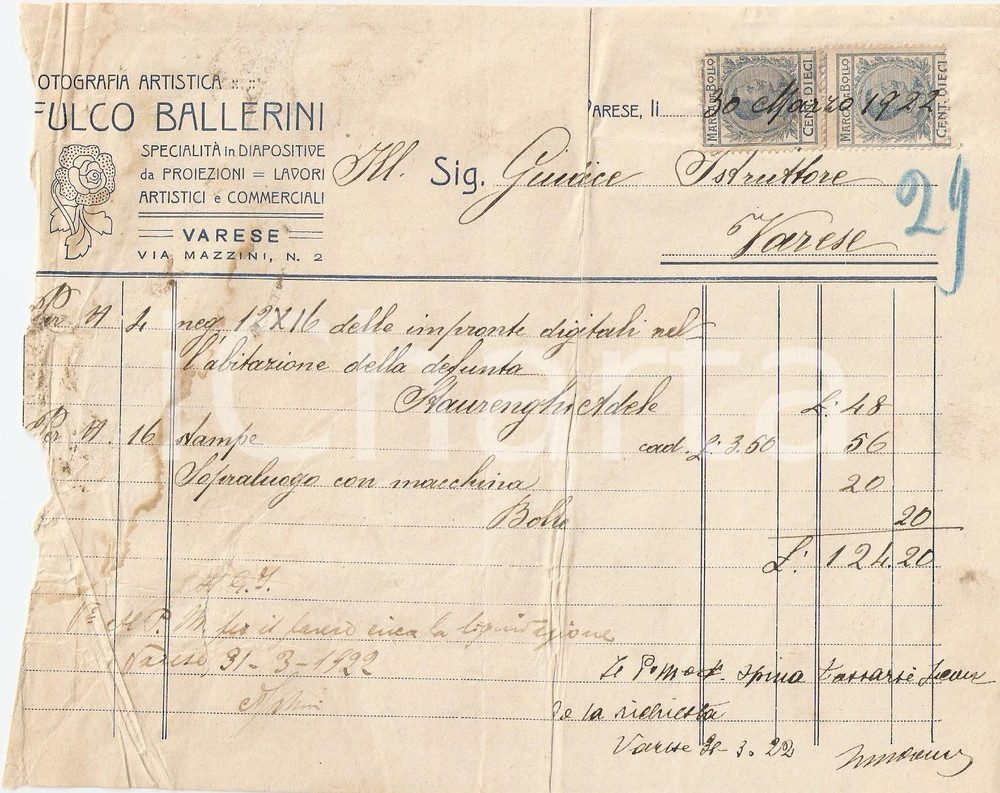 OTOGRAFIA ARTISTICA
FULCO BALLERINI
SPECIALITÀ in DIAPOSITIVE
da PROIEZIONI = LAVORI
ARTISTICI e COMMERCIALI
VARESE
VIA MAZZINI, N. 2
MARCA DA BOLLO
CENT. DIECI
MARCA DA BOLLO
CENT. DIECI
VARESE, li 30 Marzo 1922
Ill. Sig. Giudice Istruttore
Varese
29
Per N 4 neg 12X16 delle impronte digitali nel-
l'abitazione della defunta
Maurenghi Adele L. 48
Per N. 16 stampe cad. L. 3.50 56
Sopraluogo con macchina 20
Bollo 20
L. 124.20
Il G.I.
il parere circa la liquidazione
Varese 31-3-1922
tassarsi
la richiesta
Varese 31.3.22
iCharta